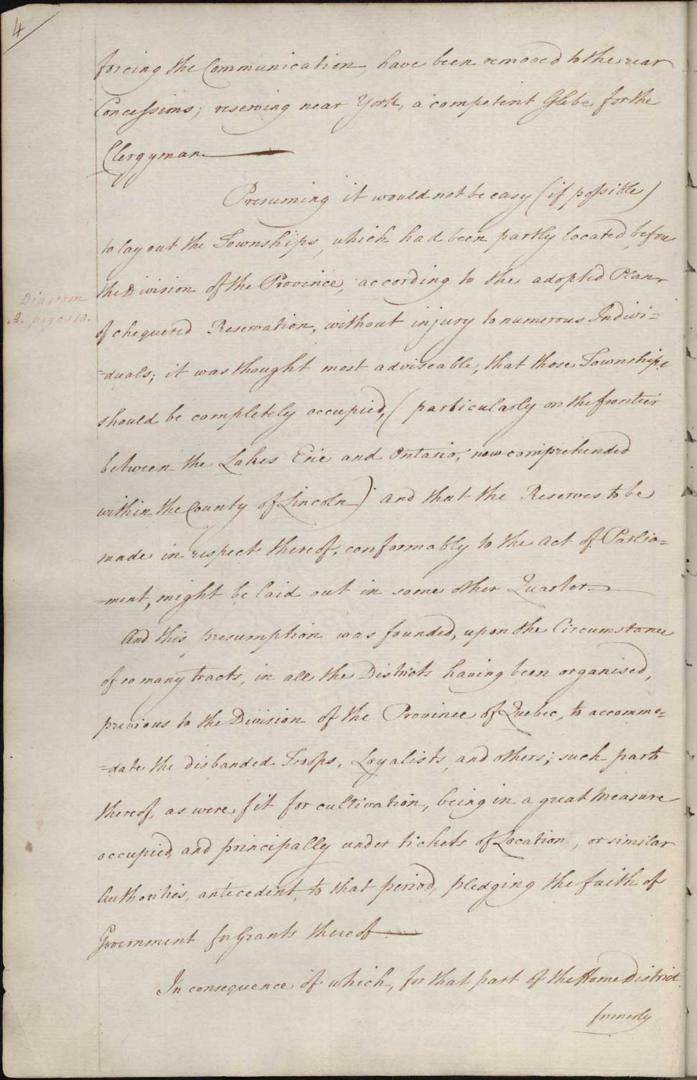 4
forcing the Communication, have been removed to the rear
Concessions; reserving near York, a competent Glebe for the
Clergyman
Presuming it would not be easy (if possible)
to lay out the Townships, which had been partly located, before
the Division of the Province, according to the adopted Plan
of chequered Reservation, without injury to numerous Indivi-
-duals; it was thought most adviseable, that those Townships
should be completely occupied, (particularly on the frontier
between the Lakes Erie and Ontario, now comprehended
within the County of Lincoln) and that the Reserves to be
made in respect thereof, conformably to the Act of Parlia-
-ment, might be laid out in some other Quarter
And this presumption was founded, upon the Circumstance
of so many tracts, in all the Districts having been organised,
previous to the Division of the Province of Quebec, to accommo-
-date the disbanded Troops, Loyalists, and others; such parts
thereof, as were fit for cultivation, being in a great measure
occupied, and principally under tickets of Location, or similar
Authorities, antecedent, to that period, pledging the faith of
Government for Grants thereof
In consequence of which, for that part of the Home District
formerly
Diagram
A. page